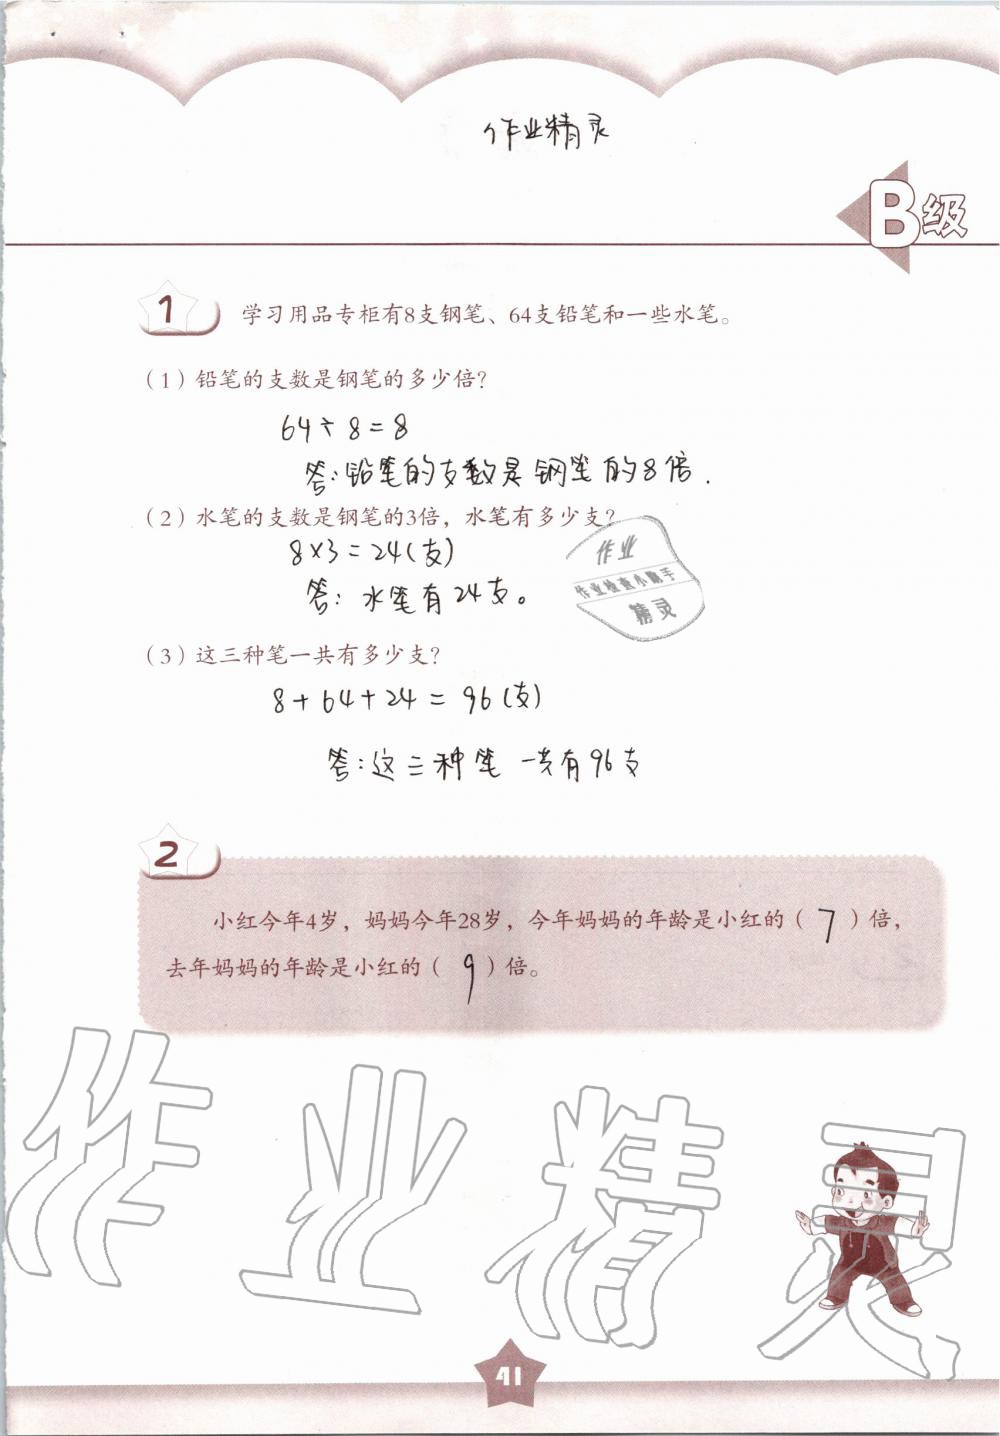 作业精灵
B级
1 学习用品专柜有8支钢笔、64支铅笔和一些水笔。
（1）铅笔的支数是钢笔的多少倍？
64÷8=8
答：铅笔的支数是钢笔的8倍.
（2）水笔的支数是钢笔的3倍，水笔有多少支？
8×3=24(支)
答：水笔有24支。
作业
作业检查小助手
精灵
（3）这三种笔一共有多少支？
8+64+24=96(支)
答：这三种笔一共有96支
2
小红今年4岁，妈妈今年28岁，今年妈妈的年龄是小红的（7）倍，
去年妈妈的年龄是小红的（9）倍。
作业精灵
41